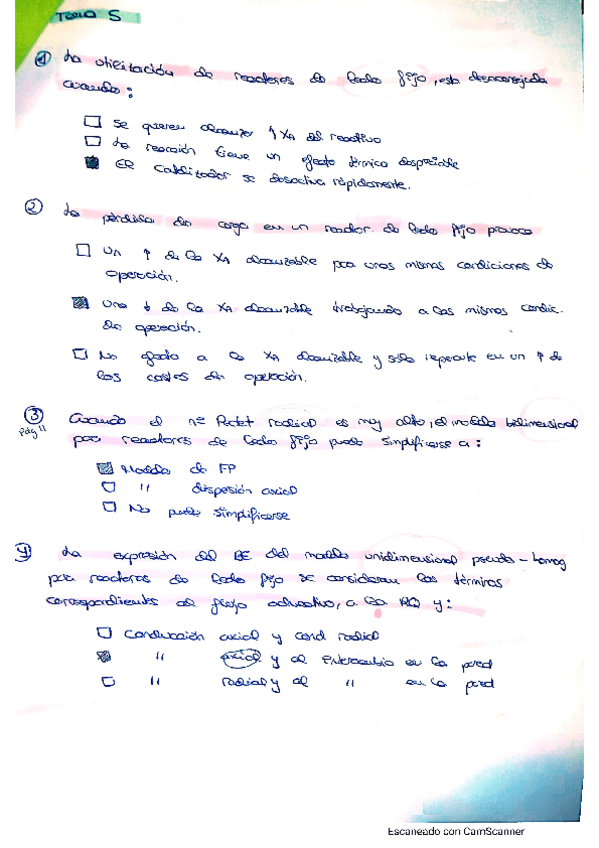 Tema 5
① La utilización de reactores de lecho fijo, está desaconsejada
cuando:
□ Se quieren alcanzar ↑ XA del reactivo
□ La reacción tiene un efecto térmico despreciable
■ El catalizador se desactiva rápidamente.
② La pérdida de carga en un reactor de lecho fijo provoca
□ Un ↑ de la XA alcanzable para unas mismas condiciones de
operación.
■ Una ↓ de la XA alcanzable trabajando a las mismas condic.
de operación.
□ No afecta a la XA alcanzable y sólo repercute en un ↑ de
los costes de operación.
③ Cuando el nº Peclet radial es muy alto, el modelo bidimensional
pág 11
para reactores de lecho fijo puede simplificarse a:
■ Modelo de FP
□ " dispesión axial
□ No puede simplificarse
④ La expresión del BE del modelo unidimensional pseudo-homog
para reactores de lecho fijo se consideran los términos
correspondientes al flujo advectivo, a la RQ y:
□ Conducción axial y cond radial
■ " axial y al intercambio en la pared
□ " radial y al " en la pared
Escaneado con CamScanner